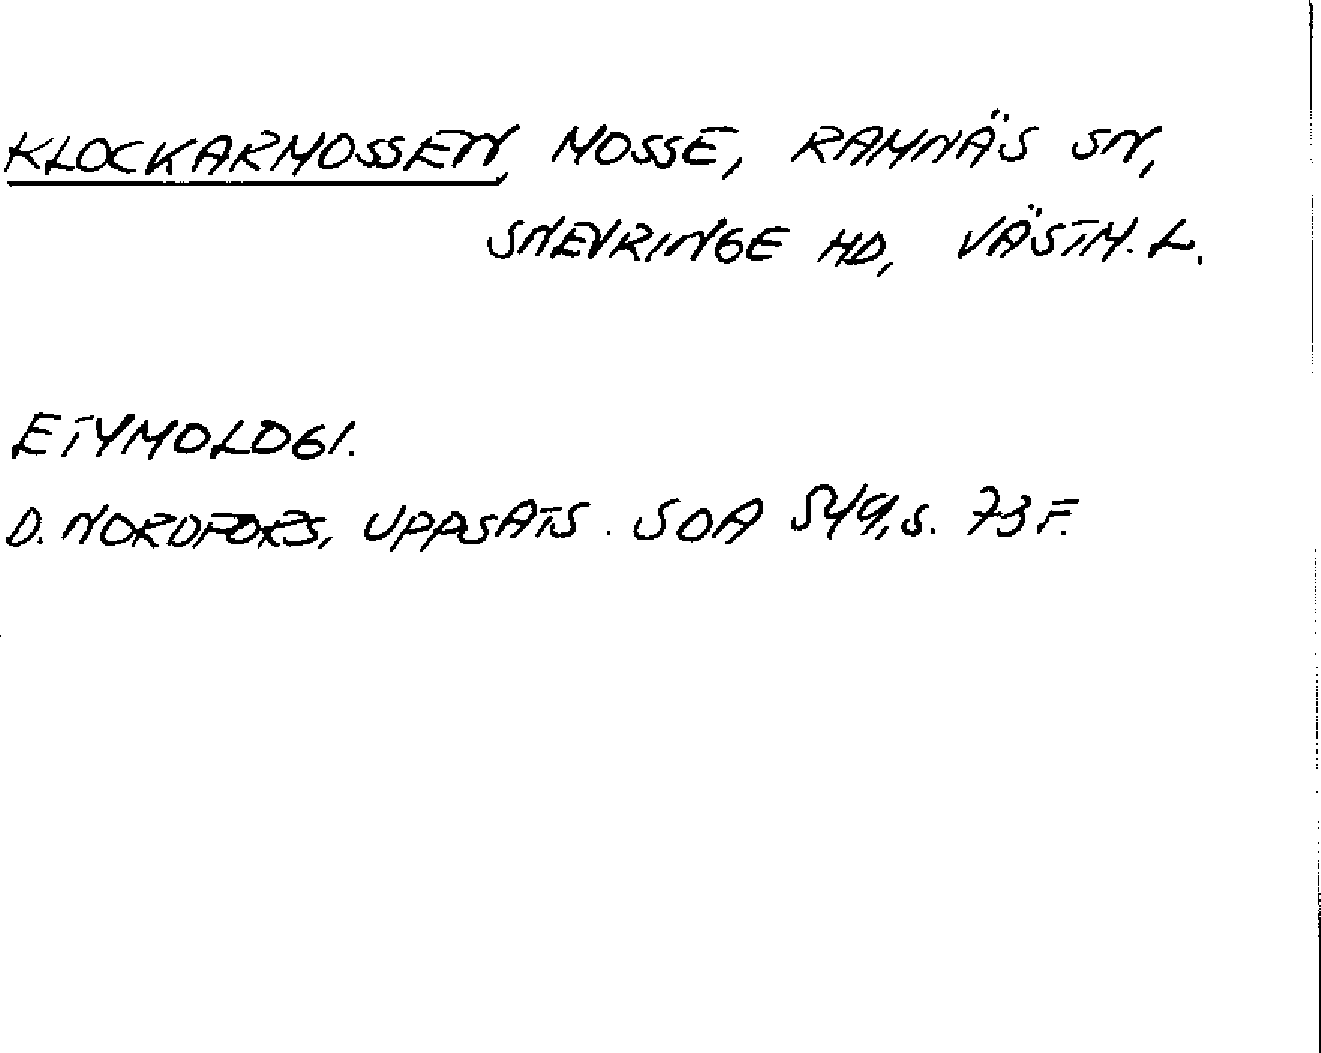 KLOCKARMOSSEN, MOSSE, RAMNÄS SN,
SNEVRINGE HD, VÄSTM. L.
ETYMOLOGI.
D. NORDFORS, UPPSATS. SOA 549, S. 73 F.